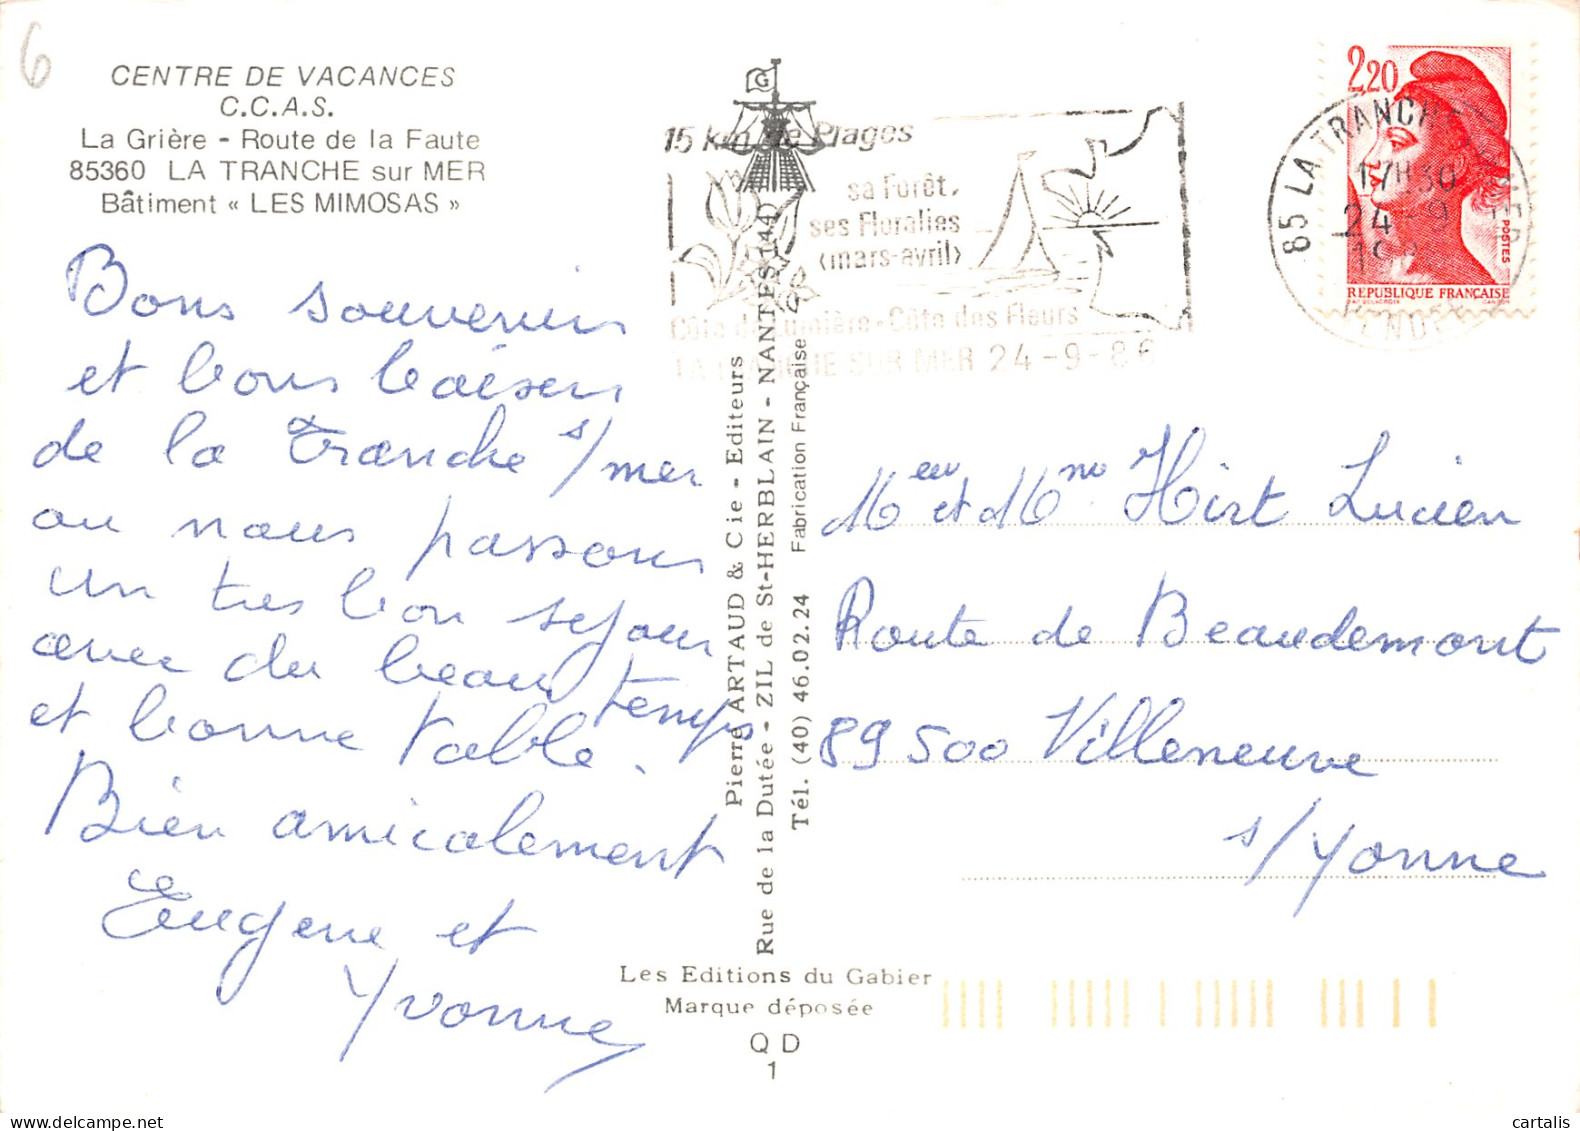 6
CENTRE DE VACANCES
C.C.A.S.
La Grière - Route de la Faute
85360 LA TRANCHE sur MER
Bâtiment « LES MIMOSAS »
Bons souvenirs
et bons baisers
de la Tranche s/mer
ou nous passons
un tres bon sejour
avec du beau temps
et bonne table.
Bien amicalement
Eugene et
Yvonne
G
15 km de Plages
sa Forêt,
ses Floralies
(mars-avril)
Côte de Lumière - Côte des Fleurs
LA TRANCHE SUR MER 24-9-86
Pierre ARTAUD & Cie - Editeurs
Rue de la Dutée - ZIL de St-HERBLAIN - NANTES (44)
Tél. (40) 46.02.24 Fabrication Française
Les Editions du Gabier
Marque déposée
Q D
1
2,20
POSTES
RÉPUBLIQUE FRANÇAISE
85 LA TRANCHE
17H30
24-9
Meur et Mme Hirt Lucien
Route de Beaudemont
89500 Villeneuve
s/Yonne
cartalis